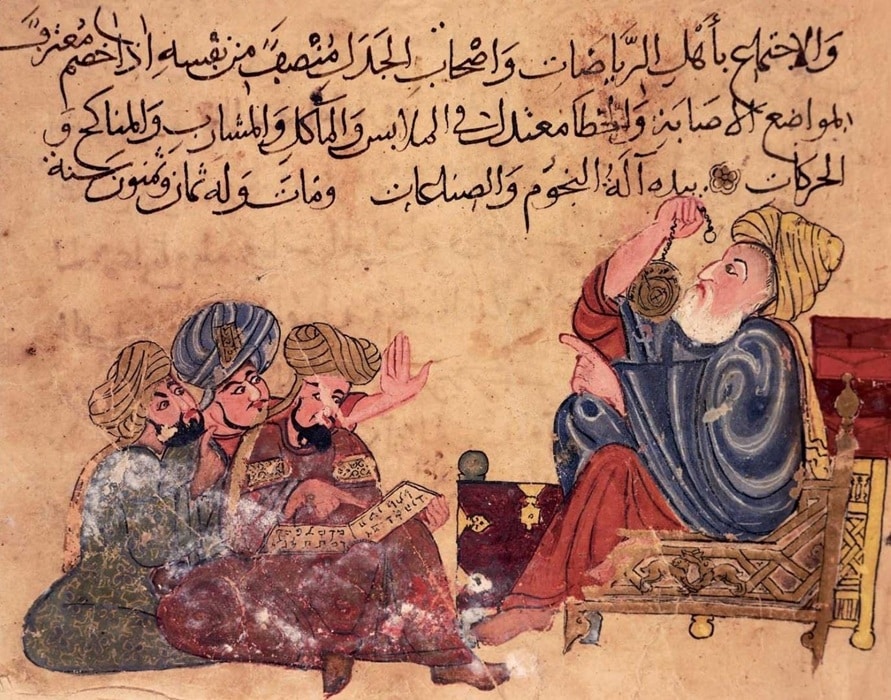 والاجتماع بأهل الرياضات واصحاب الجدل مُنْصِفًا من نفسه اذا خصم معترفًا
بمواضع الاصابة والخطا معتدل في الملابس والمآكل والمشارب والمناكح و
الحركات بيده آلة النجوم والصناعات ومات وله ثمان وثمنون سنة